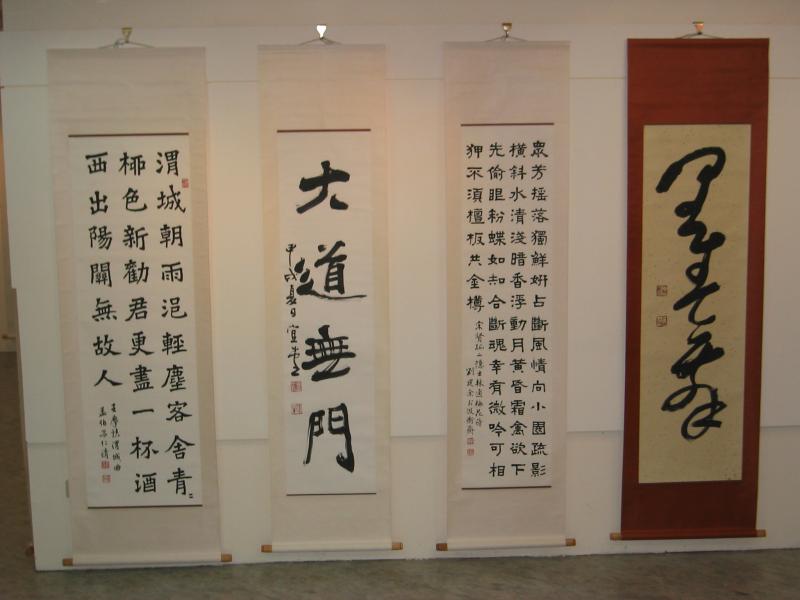 渭城朝雨浥輕塵客舍青
柳色新勸君更盡一杯酒
西出陽關無故人
王摩詰渭城曲
大道無門
甲戌夏日
眾芳搖落獨鮮妍占斷風情向小園疏影
橫斜水清淺暗香浮動月黃昏霜禽欲下
先偷眼粉蝶如知合斷魂幸有微吟可相
狎不須檀板共金樽
宋賢孤山隱士林逋梅花詩